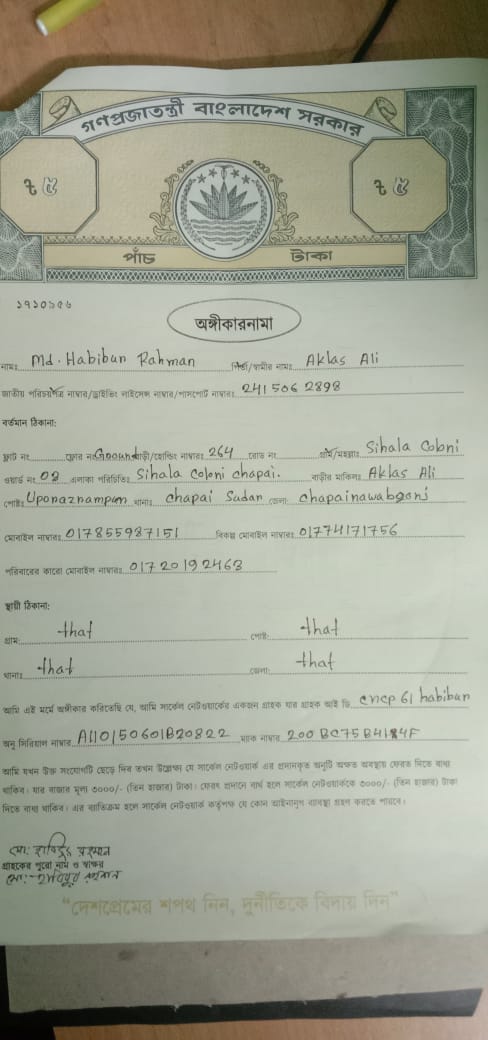 গণপ্রজাতন্ত্রী বাংলাদেশ সরকার
৳ ৫ ৳ ৫
পাঁচ টাকা
১৭১০১৫৬
অঙ্গীকারনামা
নামঃ Md. Habibun Rahman পিতা/স্বামীর নামঃ Aklas Ali
জাতীয় পরিচয়পত্র নাম্বার/ড্রাইভিং লাইসেন্স নাম্বার/পাসপোর্ট নাম্বারঃ 241 506 2898
বর্তমান ঠিকানা:
ফ্ল্যাট নং ফ্লোর নং Goound বাড়ী/হোল্ডিং নাম্বারঃ 264 রোড নং গ্রাম/মহল্লাঃ Sihala Coloni
ওয়ার্ড নং 02 এলাকা পরিচিতিঃ Sihala coloni chapai. বাড়ীর মালিকঃ Aklas Ali
পোষ্টঃ Uponaznampum থানাঃ chapai Sadan জেলাঃ chapainawabgonj
মোবাইল নাম্বারঃ 017855987151 বিকল্প মোবাইল নাম্বারঃ 01774171756
পরিবারের কারো মোবাইল নাম্বারঃ 01720192463
স্থায়ী ঠিকানা:
গ্রাম: that পোষ্ট: that
থানাঃ that জেলা: that
আমি এই মর্মে অঙ্গীকার করিতেছি যে, আমি সার্কেল নেটওয়ার্কের একজন গ্রাহক যার গ্রাহক আই ডি cncp 61 habibun
অনু সিরিয়াল নাম্বার A110150601B20822 ম্যাক নাম্বার 200 BC75B4184F
আমি যখন উক্ত সংযোগটি ছেড়ে দিব তখন উল্লেক্ষ্য যে সার্কেল নেটওয়ার্ক এর প্রদানকৃত অনুটি অক্ষত অবস্থায় ফেরত দিতে বাধ্য
থাকিব। যার বাজার মূল্য ৩০০০/- (তিন হাজার) টাকা। ফেরৎ প্রদানে ব্যর্থ হলে সার্কেল নেটওয়ার্ককে ৩০০০/- (তিন হাজার) টাকা
দিতে বাধ্য থাকিব। এর ব্যতিক্রম হলে সার্কেল নেটওয়ার্ক কর্তৃপক্ষ যে কোন আইনানুগ ব্যবস্থা গ্রহণ করতে পারবে।
মো: হাবিবুর রহমান
গ্রাহকের পুরো নাম ও স্বাক্ষর
মো:-হাবিবুর রহমান
"দেশপ্রেমের শপথ নিন, দুর্নীতিকে বিদায় দিন"